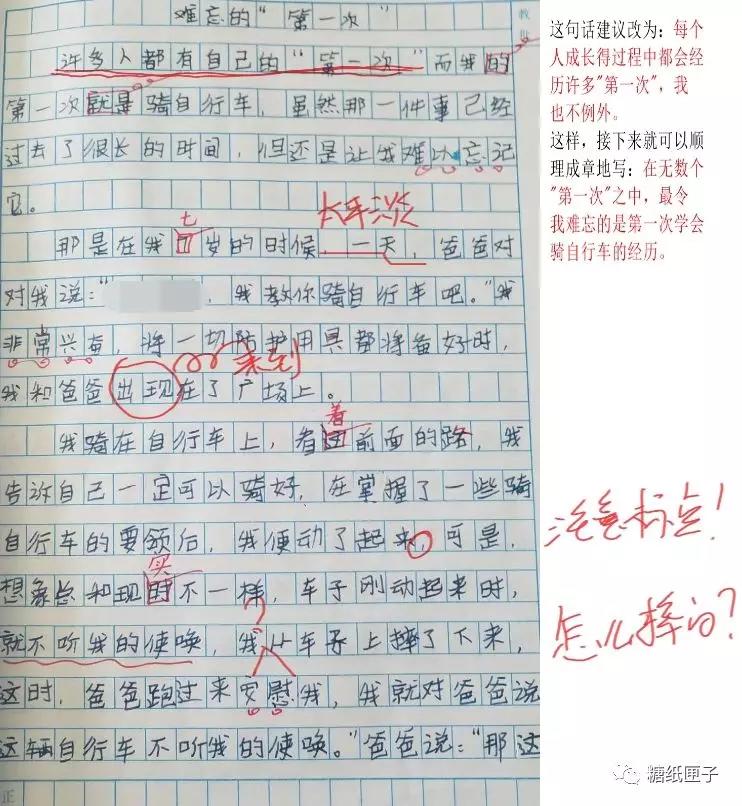 难忘的“第一次”
许多人都有自己的“第一次”而我的
第一次就是骑自行车，虽然那一件事已经
过去了很长的时间，但还是让我难以忘记
它。
七
那是在我岁的时候，一天，爸爸对
对我说：“，我教你骑自行车吧。”我
非常兴奋，将一切防护用具都准备好时，
来到
我和爸爸出现在了广场上。
着
我骑在自行车上，看前面的路，我
告诉自己一定可以骑好，在掌握了一些骑
自行车的要领后，我便动了起来，可是，
实
想象总和现不一样，车子刚动起来时，
就不听我的使唤，我从车子上摔了下来，
这时，爸爸跑过来安慰我，我就对爸爸说
这辆自行车不听我的使唤。”爸爸说：“那这
这句话建议改为：每个
人成长得过程中都会经
历许多"第一次"，我
也不例外。
这样，接下来就可以顺
理成章地写：在无数个
"第一次"之中，最令
我难忘的是第一次学会
骑自行车的经历。
注意标点！
怎么摔的？
糖纸匣子